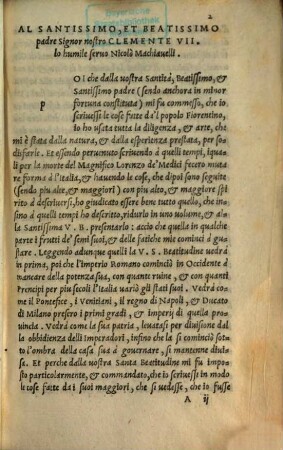 2
AL SANTISSIMO, ET BEATISSIMO
padre Signor nostro CLEMENTE VII.
lo humile servo Nicolò Machiavelli.
P
OI che dalla vostra Santità, Beatissimo, &
Santissimo padre (sendo anchora in minor
fortuna constituta) mi fu commesso, che io
scrivessi le cose fatte da'l popolo Fiorentino,
io ho usata tutta la diligenza, & arte, che
mi è stata dalla natura, & dalla esperienza prestata, per so-
disfarle. Et essendo pervenuto scrivendo à quelli tempi, iquali
li per la morte del Magnifico Lorenzo de' Medici fecero muta
re forma d'Italia, & havendo le cose, che dipoi sono seguite
(sendo piu alte, & maggiori) con piu alto, & maggiore spi
rito à descriversi, ho giudicato essere bene tutto quello, che in-
sino à quelli tempi ho descritto, ridurlo in uno volume, & al
la Santissima V. B. presentarlo: accio che quella in qualche
parte i frutti de' semi suoi, & delle fatiche mie cominci à gu
stare. Leggendo adunque quelli la V. S. Beatitudine vedrà
in prima, poi che l'Imperio Romano cominciò in Occidente à
mancare della potenza sua, con quante ruine, & con quanti
Prencipi per piu secoli l'Italia variò gli stati suoi. Vedrà co
me il Pontefice, i Venitiani, il regno di Napoli, & Ducato
di Milano presero i primi gradi, & imperij di quella pro
vincia. Vedrà come la sua patria, levatasi per divisione dal
la obbidienza delli Imperadori, infino che la si cominciò sot
to l'ombra della casa sua à governare, si mantenne divi-
sa. Et perche dalla vostra Santa Beatitudine mi fu impo
sto particolarmente, & commandato, che io scrivessi in modo
le cose fatte da i suoi maggiori, che si vedesse, che io fusse
A ij